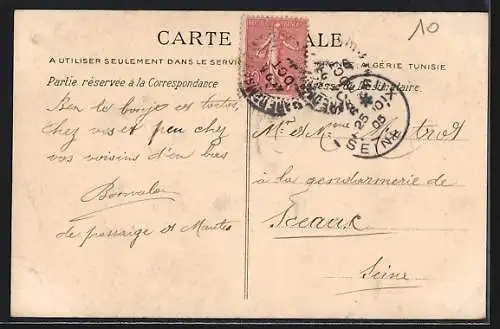 10
CARTE ALE
A UTILISER SEULEMENT DANS LE SERVI ALGÉRIE TUNISIE
Partie réservée à la Correspondance
du Destinataire.
Ben le bonjo et toutos,
chez vos et peu chez
vos voisins d'en bas
Bonvalon
de passaige et Mantes
Mr et Mme
à la gendarmerie de
Sceaux
Seine
25
05
SEINE